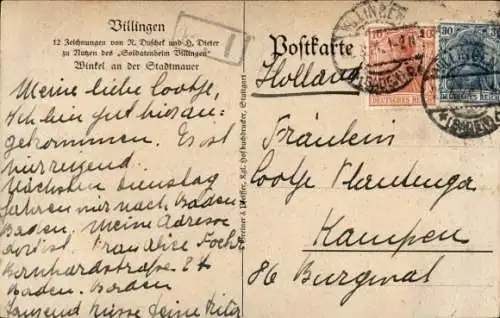 Villingen
12 Zeichnungen von R. Duschek und H. Dieter
zu Nutzen des "Soldatenheim Villingen"
Winkel an der Stadtmauer
Meine liebe Lootje,
Ich bin gut hier an-
gekommen. Es ist
Nächsten Dienstag
fahren wir nach Baden
Baden, meine Adresse
dort ist. Frau Alice
Bernhardstraße 24
Baden. Baden
Tausend Küsse deine
Postkarte
Holland
Fräulein
Lootje Plantenga
Kampen
86 Burgwal
10
30
DEUTSCHES REICH
VILLINGEN
(BADEN)
1
Kgl. Hofbuchdrucker, Stuttgart